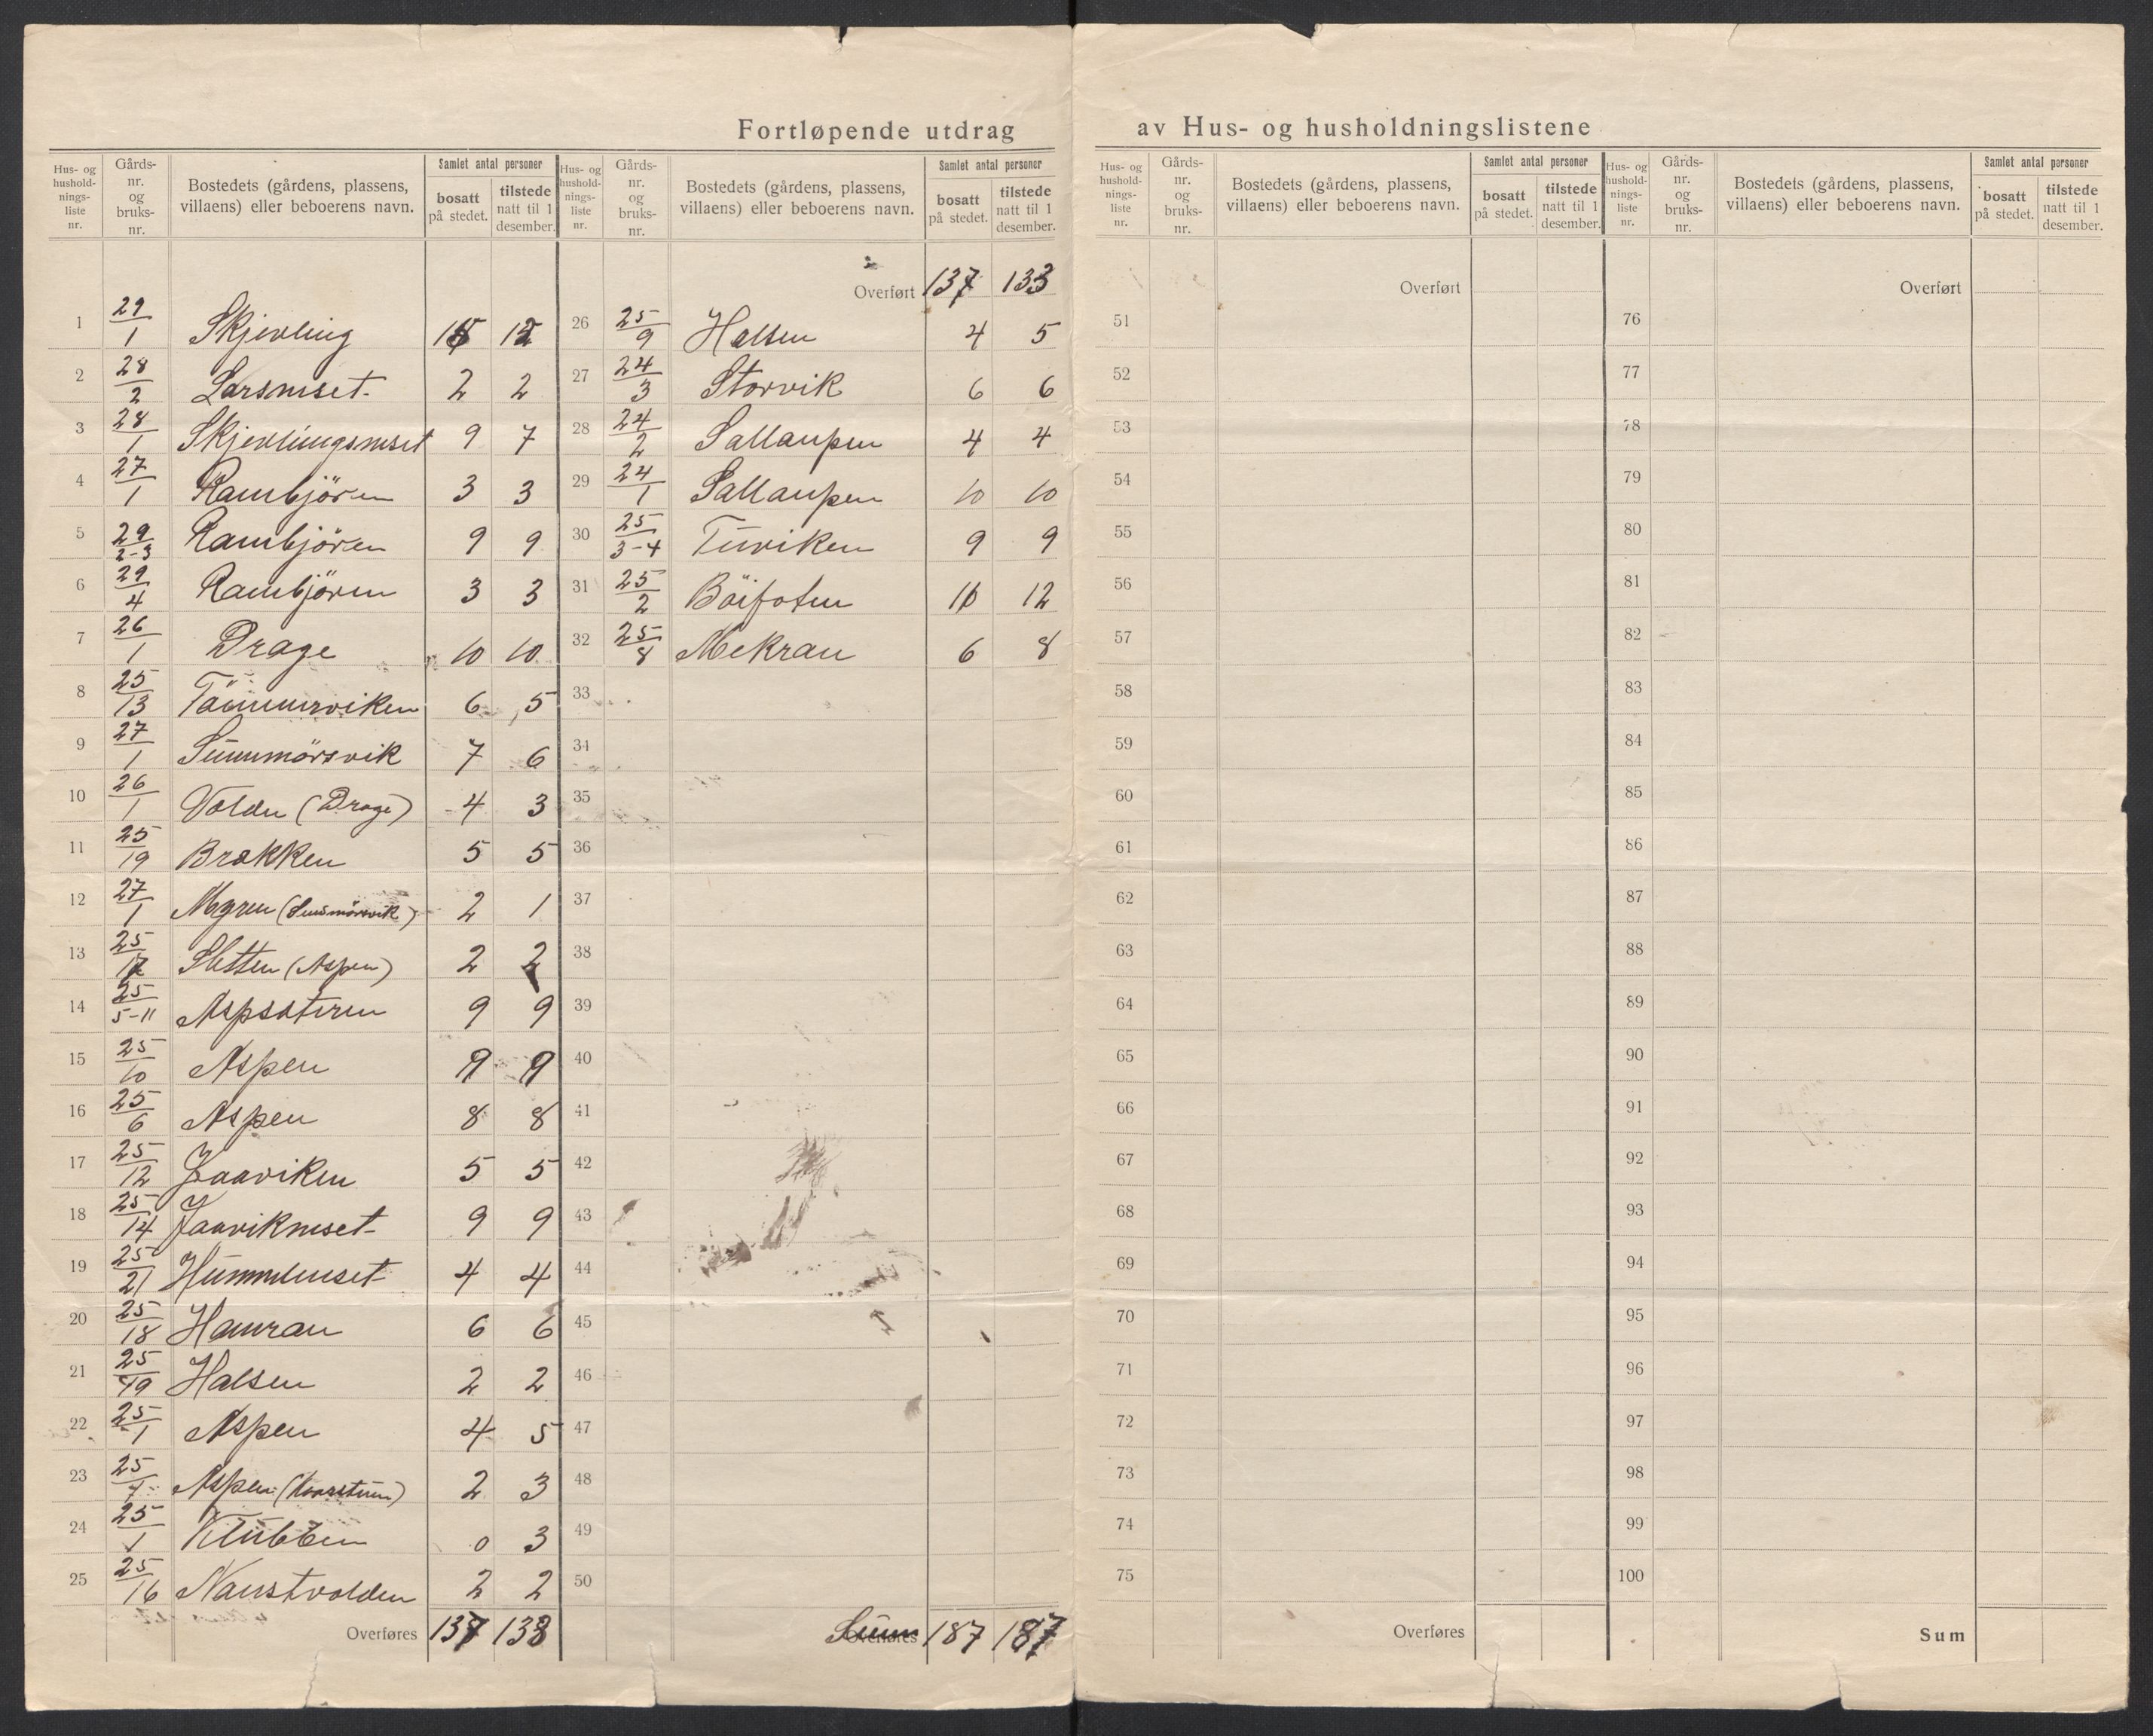 Fortløpende utdrag av Hus- og husholdningslistene
Hus- og hushold-nings-liste nr. | Gårds-nr. og bruks-nr. | Bostedets (gårdens, plassens, villaens) eller beboerens navn. | Samlet antal personer | bosatt på stedet. | tilstede natt til 1 desember.
1 29/1 Skjevling 15 12
2 28/2 Larsneset 2 2
3 28/1 Skjevlingsneset 9 7
4 27/1 Rambjören 3 3
5 29/2-3 Rambjören 9 9
6 29/4 Rambjören 3 3
7 26/1 Drage 10 10
8 25/13 Tömmerviken 6 5
9 27/1 Sunnmörsvik 7 6
10 26/1 Volden (Drage) 4 3
11 25/19 Brækken 5 5
12 27/1 Myren (Sunmörsvik) 2 1
13 25/17 Sletten (Aspen) 2 2
14 25/5-11 Aspsæteren 9 9
15 25/10 Aspen 9 9
16 25/6 Aspen 8 8
17 25/12 Jaaviken 5 5
18 25/14 Jaavikneset 9 9
19 25/21 Hummelneset 4 4
20 25/18 Hamran 6 6
21 25/19 Halsen 2 2
22 25/1 Aspen 4 5
23 25/7 Aspen 2 3
24 25/1 Klubben 0 3
25 25/16 Naustvolden 2 2
Overføres 137 133
Hus- og hushold-nings-liste nr. | Gårds-nr. og bruks-nr. | Bostedets (gårdens, plassens, villaens) eller beboerens navn. | Samlet antal personer | bosatt på stedet. | tilstede natt til 1 desember.
Overført 137 133
26 25/9 Halsen 4 5
27 24/3 Storvik 6 6
28 24/2 Sallaupen 4 4
29 24/1 Sallaupen 10 10
30 25/3-4 Tuviken 9 9
31 25/2 Böifoten 11 12
32 25/8 Mekran 6 8
33
34
35
36
37
38
39
40
41
42
43
44
45
46
47
48
49
50
Overføres Sum 187 187
Hus- og hushold-nings-liste nr. | Gårds-nr. og bruks-nr. | Bostedets (gårdens, plassens, villaens) eller beboerens navn. | Samlet antal personer | bosatt på stedet. | tilstede natt til 1 desember.
Overført
51
52
53
54
55
56
57
58
59
60
61
62
63
64
65
66
67
68
69
70
71
72
73
74
75
Overføres
Hus- og hushold-nings-liste nr. | Gårds-nr. og bruks-nr. | Bostedets (gårdens, plassens, villaens) eller beboerens navn. | Samlet antal personer | bosatt på stedet. | tilstede natt til 1 desember.
Overført
76
77
78
79
80
81
82
83
84
85
86
87
88
89
90
91
92
93
94
95
96
97
98
99
100
Sum